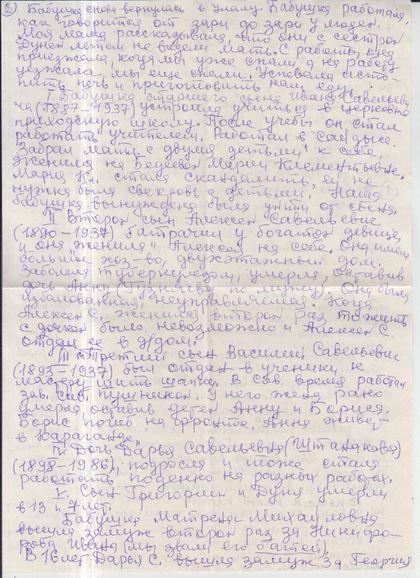 2) Бабушка снова вернулась в Уналу. Бабушка работала,
как говорится от зари до зари у людей.
Моя мама рассказывала, что они с сестрой
Дуней летом не видели мать. С работы она
приезжала, когда мы уже спали, а на работу
уезжала, мы еще спали. Успевала исто-
пить печь и приготовить нам еду.
I Бабушка старшего сына Исаака Савельеви-
ча (1887-1937) устроила учиться в церковно
приходскую школу. После учебы он стал
работать учителем. Работал в
Забрал мать с двумя детьми к себе.
Женился на Марии Климентьевне.
Мария К. стала скандалить, ей не
нужна была свекровь с детьми. Наша
бабушка вынуждена была уйти от сына.
II Второй сын Алексей Савельевич
(1890-1937) батрачил у богатой девицы
и она женила Алексея на себе. Она имела
большое хоз-во, двухэтажный дом.
Заболела туберкулезом, умерла, оставив
дочь Анну по мужу. Она была
избалованная, неуправляемая. Когда
Алексей С. женился второй раз, то жить
с дочкой было невозможно и Алексей С.
отдал ее в д/дом.
III Третий сын Василий Савельевич
(1893-1937) был отдан в ученики к
мастеру шить шапки. В Сов. время работал
зав. пушниной. У него жена рано
умерла, оставив детей Анну и Бориса.
Борис погиб на фронте, Анна живет
в Караганде.
IV Дочь Дарья Савельевна (Штанакова)
(1898-1986), подросла и тоже стала
работать поденно на разных работах.
V. Сын Григорий и Дуня умерли
в 13 и 7 лет.
Бабушка Матрена Михайловна
вышла замуж второй раз за Никифо-
рова Ивана (мы звали его батей).
В 16 лет Дарья С. вышла замуж за Георгия